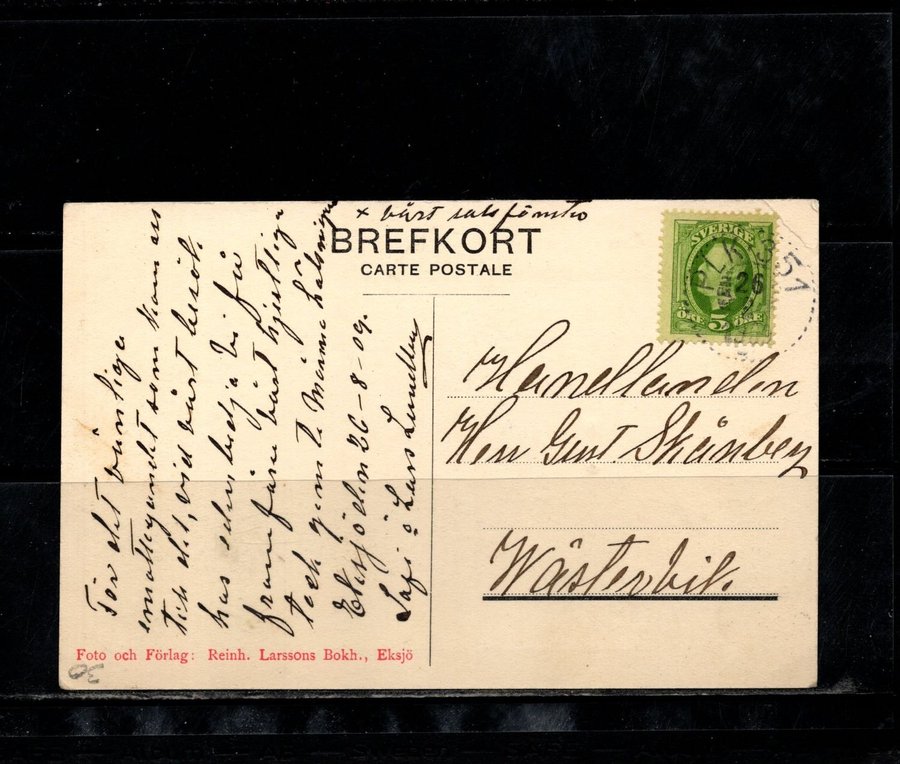 + vårt salsfönster
BREFKORT
CARTE POSTALE
SVERIGE
5
ÖRE ÖRE
PLK 351
26
För det vänliga
emottagandet som kom oss
till del, vid vårt besök
hos eder bedja vi få
framföra vårt hjertliga
tack genom
Eksjö den 26-8-09.
Sofi o Lars Lundberg
Handlanden
Herr Gust. Skånberg
Wästervik.
Foto och Förlag: Reinh. Larssons Bokh., Eksjö
30